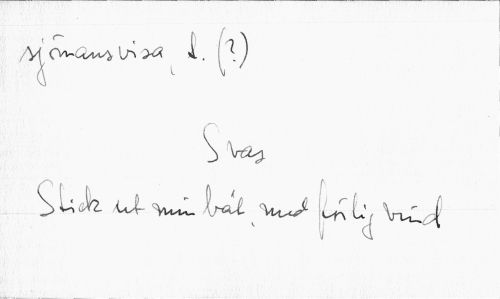 sjömansvisa, d. (?)
Svas
Stick ut min båt, med förlig vind